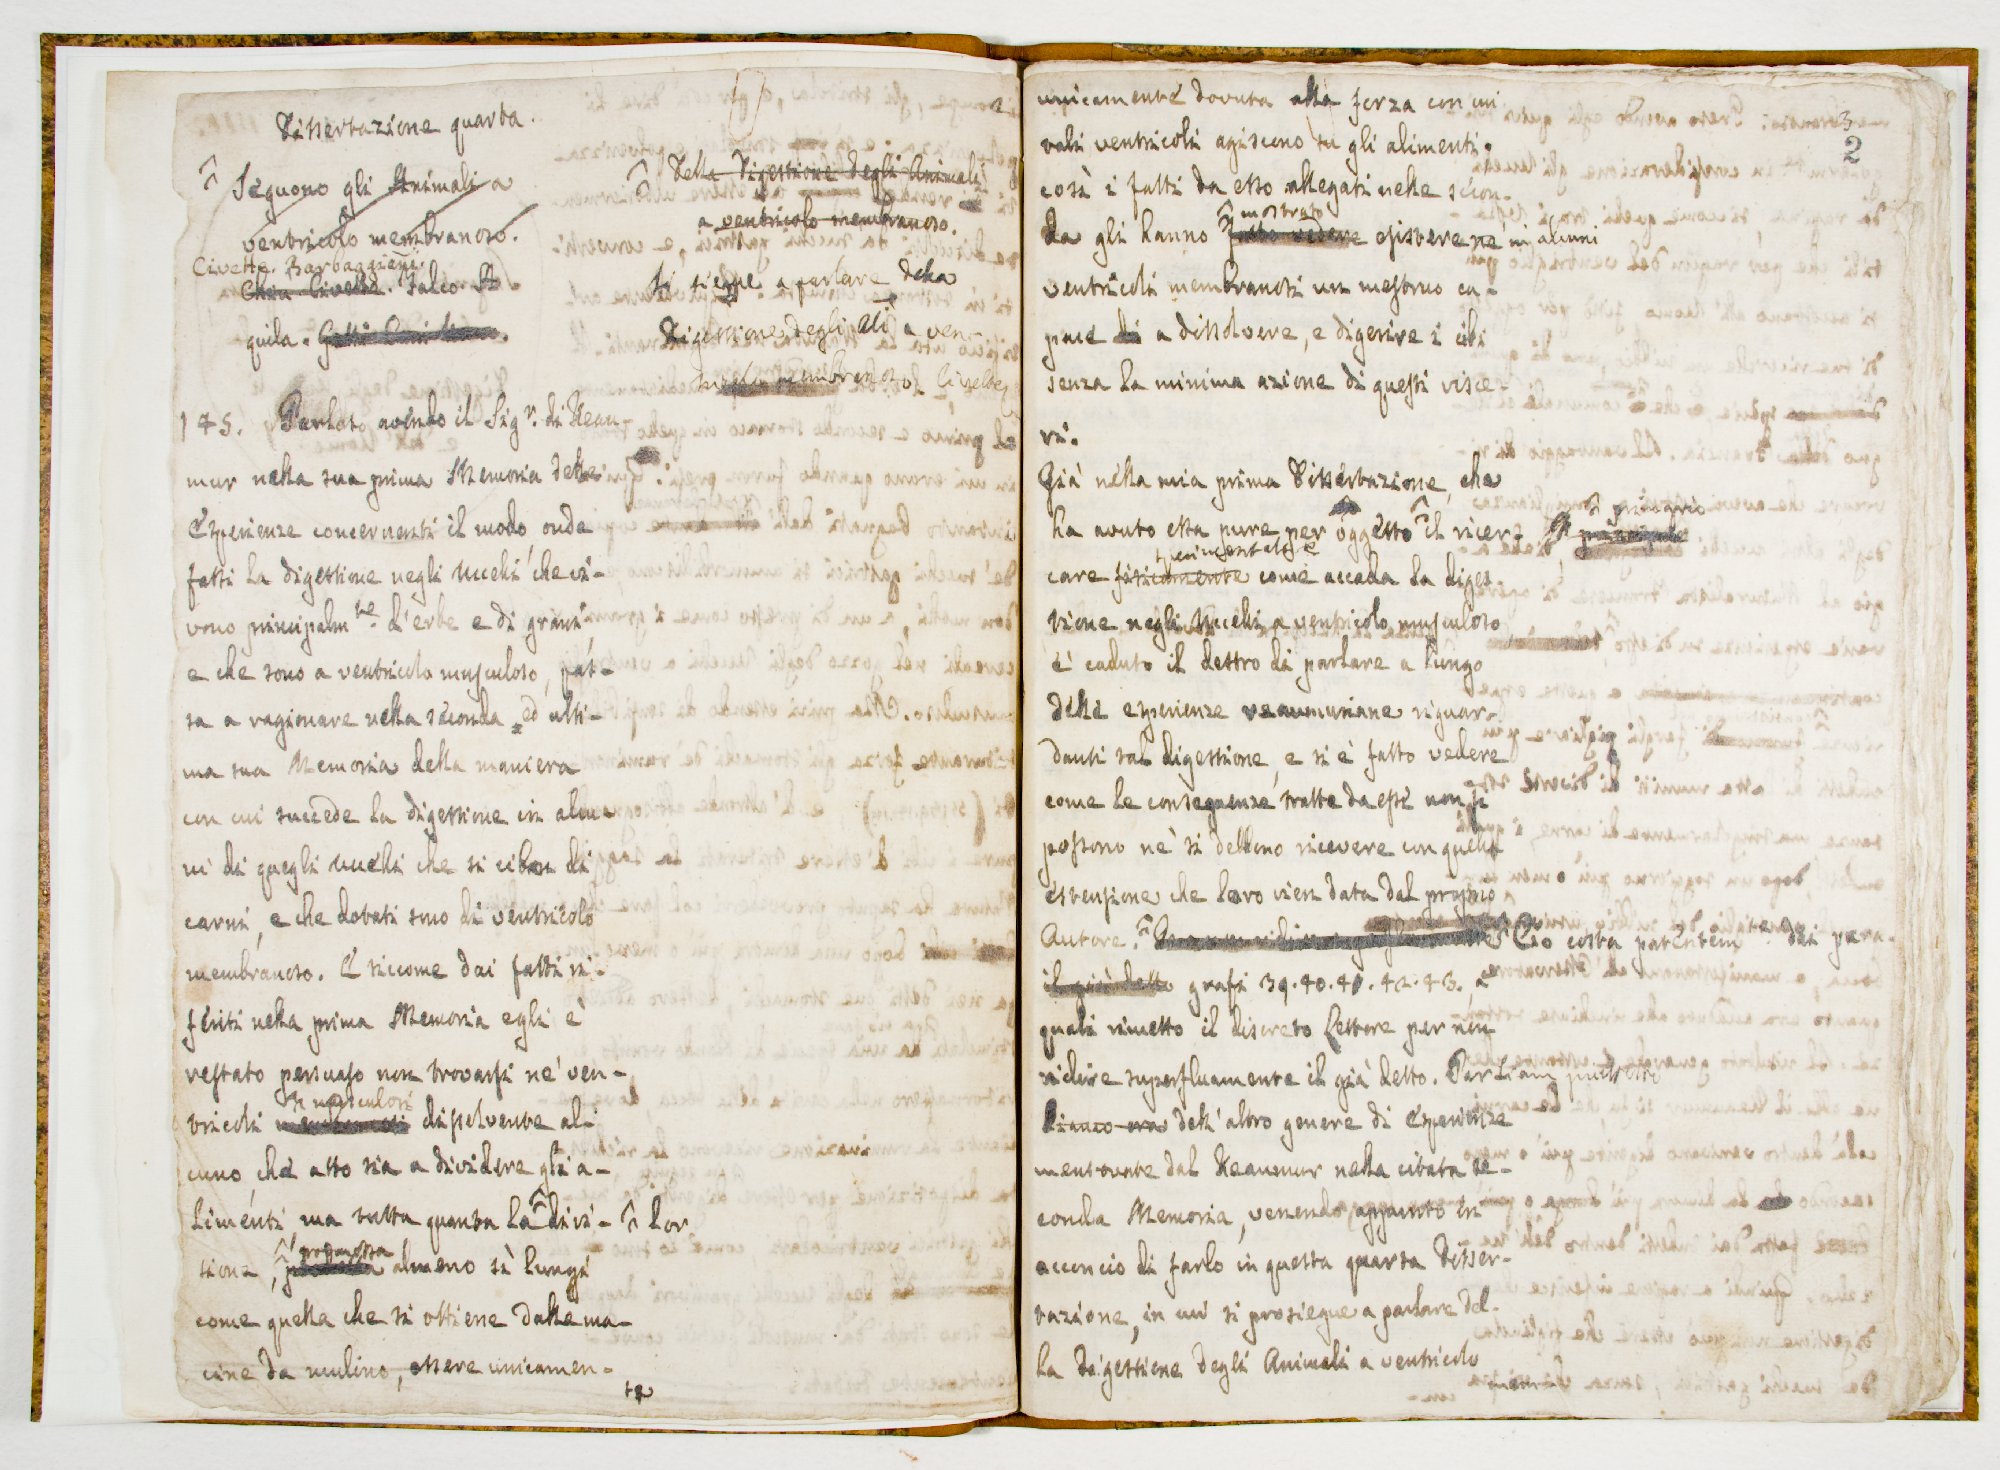 Dissertazione quarta.
Seguono gli Animali a
ventricolo membranoso.
Civette. Barbaggieni.
Civette. Falco. A
quila.
Della Digestione degli Animali
a ventricolo membranoso.
Si siegue a parlare della
Digestione degli Ali a ven-
Civette
145. Parlato avendo il Sigr. di Reau-
mur nella sua prima Memoria delle
Esperienze concernenti il modo onde
fassi la digestione negli Uccelli che vi-
vono principalmte. d'erbe e di grani,
e che sono a ventricolo musculoso, pas-
sa a ragionare nella seconda ed ulti-
ma sua Memoria della maniera
con cui succede la digestione in alcu-
ni di quegli Uccelli che si ciban di
carni, e che dotati sono di ventricolo
membranoso. E siccome dai fatti ri-
feriti nella prima Memoria egli è
restato persuaso non trovarsi ne' ven-
musculosi
tricoli dissolvente al-
cuno che atto sia a dividere gli a-
limenti, ma tutta quanta la divi- lor
sione, almeno sì lungi
come quella che si ottiene dalle ma-
cine da mulino, essere unicamen-
te
3
2
unicamente dovuta alla forza con cui
tali ventricoli agiscono su gli alimenti.
così i fatti da esso allegati nella secon-
mostrato
da gli hanno fatto vedere esistere ne' in alcuni
ventricoli membranosi un mestruo ca-
pace di a dissolvere, e digerire i cibi
senza la minima azione di questi visce-
ri.
Già nella mia prima Dissertazione, che
ha avuto essa pure per oggetto il ricer- primario
care fisicamente come accada la diges-
tione negli Uccelli a ventricolo musculoso
è caduto il destro di parlare a lungo
delle esperienze reaumuriane riguar-
danti tal digestione, e si è fatto vedere
come le conseguenze tratte da esse non si
possono nè si debbono ricevere con quella
estensione che loro vien data dal proprio
Autore. Ciò costa patentemte. dai para-
il già detto grafi 39. 40. 41. 42. 43., a'
quali rimetto il discreto Lettore per non
ridire superfluamente il già detto. Parliam piuttosto
ora dell'altro genere di Esperienze
mentovate dal Reaumur nella citata se-
conda Memoria, venendo appunto in
acconcio di farlo in questa quarta Disser-
tazione, in cui si prosiegue a parlare del-
la digestione degli Animali a ventricolo
mem-